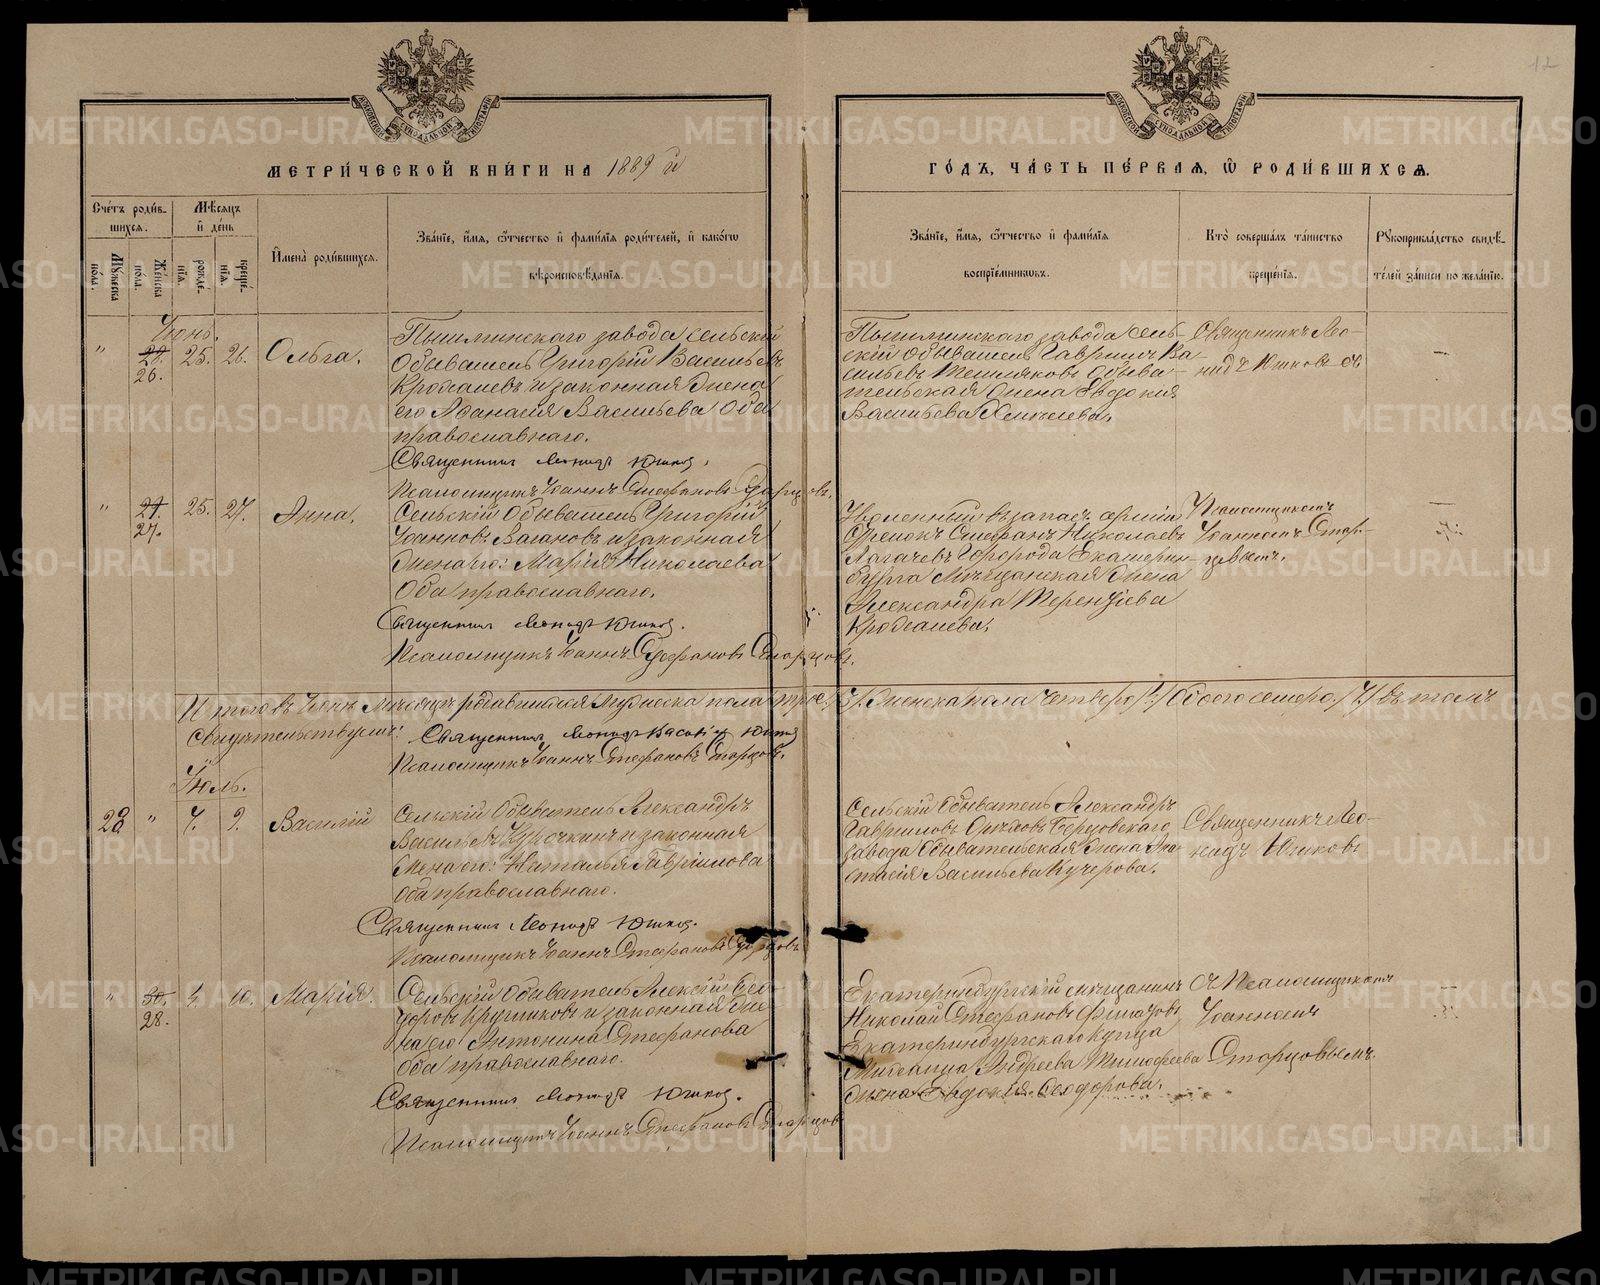 12
МЕТРИ́ЧЕСКОЙ КНИ́ГИ НА 1889 й
ГО́ДЪ, ЧА́СТЬ ПЕ́РВАЯ, Ѡ РОДИ́ВШИХСЯ.
Сче́тъ роди́в-
шихся.
Му́жеска по́ла.
Же́нска по́ла.
Мѣ́сяцъ
и де́нь
рожде́-
нїя.
креще́-
нїя.
И҆мена̀ роди́вшихся.
Зва́нїе, и҆́мя, ѻ҆́тчество и҆ фами́лїя роди́телей, и҆ како́гѡ
вѣроисповѣ́данїя.
Зва́нїе, и҆́мя, ѻ҆́тчество и҆ фами́лїя
воспрїе́мниковъ.
Кто̀ соверша́лъ та́инство
креще́нїя.
Рꙋкоприкла́дство свидѣ́-
телей за́писи по жела́нїю.
Іюнь.
" 28. 26. 25. 26. Ольга.
Пышминскаго завода сельскій
Обыватель Григорій Васильевъ
и законная жена
его Аѳанасія Васильева Оба
православнаго.
Священникъ Леонидъ Юшковъ.
Псаломщикъ Іоаннъ Стефановъ Старцовъ.
Пышминскаго завода Сель-
скій Обыватель Гавріилъ Ва-
сильевъ Обыва-
тельская Жена Евдокия
Васильева
Священникъ Лео-
нидъ Юшковъ
" 27. 27. 25. 27. Анна.
Сельскій Обыватель Григорій
Іоанновъ и законная
жена его: Марія Николаева
Оба православнаго.
Священникъ Леонидъ Юшковъ.
Псаломщикъ Іоаннъ Стефановъ Старцовъ.
Уволенный въ запасъ арміи
Стефанъ Николаевъ
Города Екатерин-
бурга Мѣщанская Жена
Александра Терентіева
Псаломщикомъ
Іоанномъ Стар-
цовымъ.
Итого въ Іюнѣ Мѣсяцѣ родившихся Мужеска пола трое /3/ Женска пола четверо /4/ Обоего семеро /7/ въ томъ
Свидѣтельствуемъ: Священникъ Леонидъ Васильевъ Юшковъ
Псаломщикъ Іоаннъ Стефановъ Старцовъ.
Іюль.
28 " 7. 9. Василій
Сельскій Обыватель Александръ
Васильевъ Курочкинъ и законная
Жена его: Наталья Гавріилова
Оба православнаго.
Священникъ Леонидъ Юшковъ.
Псаломщикъ Іоаннъ Стефановъ Старцовъ
Сельскій Обыватель Александръ
Гавриловъ
завода Обывательская Жена Ана-
стасія Васильева Кучерова.
Священникъ Лео-
нидъ Юшковъ
" 30. 28. 10. Марія.
Сельскій Обыватель Алексій Ѳео-
доровъ Кругликовъ и законная Же-
на его: Антонина Стефанова
Оба православнаго.
Священникъ Леонидъ Юшковъ.
Псаломщикъ Іоаннъ Стефановъ Старцовъ
Екатеринбургскій мѣщанинъ
Николай Стефановъ
Екатеринбургскаго Купца
Михаила Андреева Тимофеева
жена Евдокія Ѳеодорова.
Псаломщикомъ
Іоанномъ
Старцовымъ.
METRIKI.GASO-URAL.RU